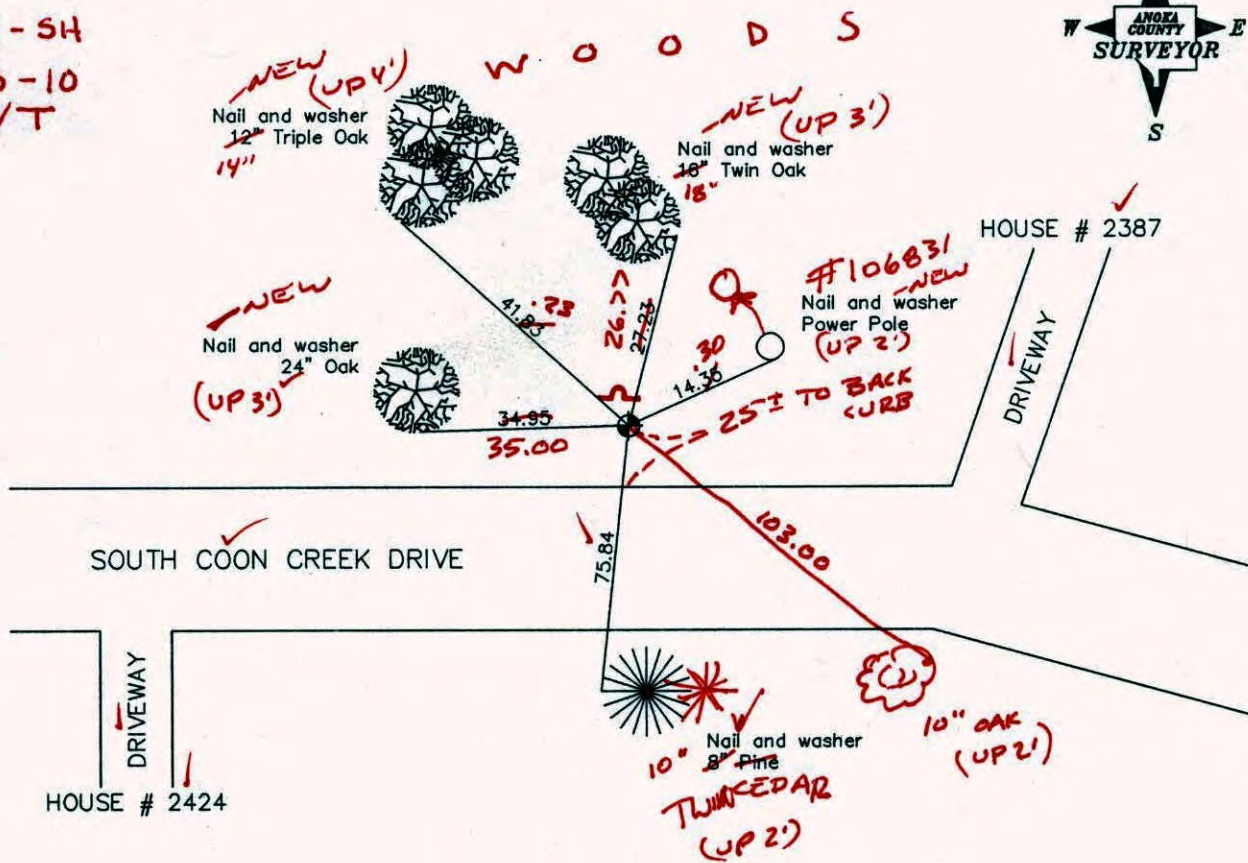 - SH
- 10
/T
W O O D S
W ANOKA COUNTY SURVEYOR E
S
NEW
(UP 4')
Nail and washer
12" Triple Oak
14"
NEW
(UP 3')
Nail and washer
16" Twin Oak
18"
HOUSE # 2387
#106831
NEW
Nail and washer
Power Pole
(UP 2')
NEW
Nail and washer
24" Oak
(UP 3')
41.83
.23
26.77
27.23
.30
14.35
25'± TO BACK
CURB
34.95
35.00
DRIVEWAY
SOUTH COON CREEK DRIVE
75.84
103.00
DRIVEWAY
HOUSE # 2424
10"
Nail and washer
8" Pine
TWIN CEDAR
(UP 2')
10" OAK
(UP 2')